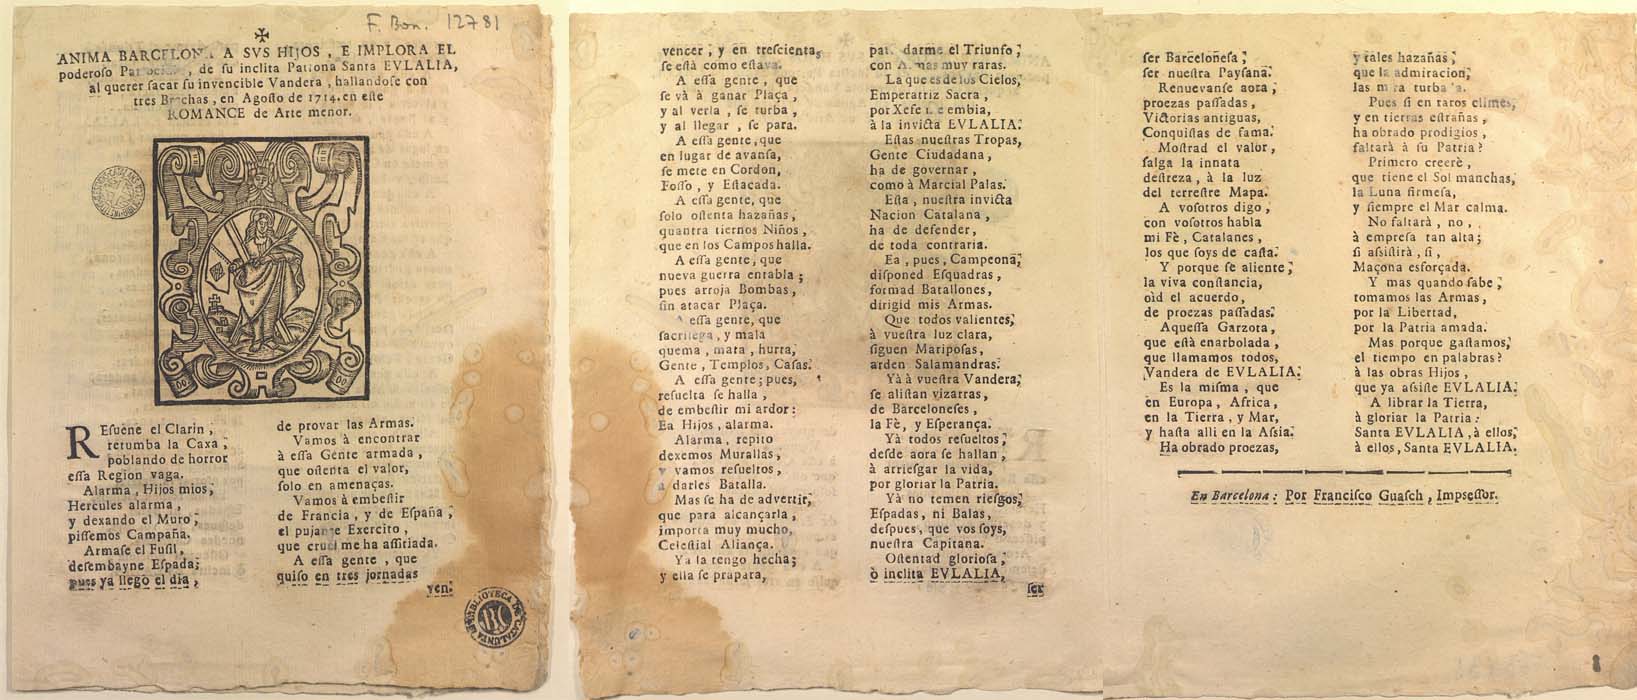 F. Bon. 12781
ANIMA BARCELONA A SVS HIJOS, E IMPLORA EL
poderoso Patrocinio, de ſu inclita Patrona Santa EVLALIA,
al querer ſacar ſu invencible Vandera, hallandoſe con
tres Brechas, en Agoſto de 1714. en eſte
ROMANCE de Arte menor.
REſuene el Clarin,
retumba la Caxa,
poblando de horror
eſſa Region vaga.
Alarma, Hijos mios,
Hercules alarma,
y dexando el Muro,
piſſemos Campaña.
Armaſe el Fuſil,
deſembayne Eſpada;
pues ya llegò el dia,
de provar las Armas.
Vamos à encontrar
à eſſa Gente armada,
que oſtenta el valor,
ſolo en amenaças.
Vamos à embeſtir
de Francia, y de Eſpaña,
el pujante Exercito,
que cruel me ha aſſitiada.
A eſſa gente, que
quiſo en tres jornadas
ven-
BIBLIOTECA DE CATALUNYA
BC
vencer, y en treſcientas
ſe eſtà como eſtava.
A eſſa gente, que
ſe và à ganar Plaça,
y al verla, ſe turba,
y al llegar, ſe para.
A eſſa gente, que
en lugar de avanſa,
ſe mete en Cordon,
Foſſo, y Eſtacada.
A eſſa gente, que
ſolo oſtenta hazañas,
quantra tiernos Niños,
que en los Campos halla.
A eſſa gente, que
nueva guerra entabla;
pues arroja Bombas,
ſin atacar Plaça.
A eſſa gente, que
ſacrilega, y mala
quema, mata, hurra,
Gente, Templos, Caſas.
A eſſa gente; pues,
reſuelta ſe halla,
de embeſtir mi ardor:
Ea Hijos, alarma.
Alarma, repito
dexemos Murallas,
y vamos reſueltos,
a darles Batalla.
Mas ſe ha de advertir,
que para alcançarla,
importa muy mucho,
Celeſtial Aliança.
Ya la tengo hecha;
y ella ſe prapara,
para darme el Triunfo,
con Armas muy raras.
La que es de los Cielos,
Emperatriz Sacra,
por Xefe me embia,
à la invicta EVLALIA.
Eſtas nueſtras Tropas,
Gente Ciudadana,
ha de governar,
como à Marcial Palas.
Eſta, nueſtra invicta
Nacion Catalana,
ha de defender,
de toda contraria.
Ea, pues, Campeona,
diſponed Eſquadras,
formad Batallones,
dirigid mis Armas.
Que todos valientes,
à vueſtra luz clara,
ſiguen Maripoſas,
arden Salamandras.
Yà à vueſtra Vandera,
ſe aliſtan vizarras,
de Barceloneſes,
la Fè, y Eſperança.
Yà todos reſueltos,
deſde aora ſe hallan,
à arrieſgar la vida,
por gloriar la Patria.
Yà no temen rieſgos,
Eſpadas, ni Balas,
deſpues, que vos ſoys,
nueſtra Capitana.
Oſtentad glorioſa,
ò inclita EVLALIA,
ſer
ſer Barceloñeſa,
ſer nueſtra Payſana.
Renuevanſe aora,
proezas paſſadas,
Victorias antiguas,
Conquiſtas de fama.
Moſtrad el valor,
ſalga la innata
deſtreza, à la luz
del terreſtre Mapa.
A voſotros digo,
con voſotros habla
mi Fè, Catalanes,
los que ſoys de caſta.
Y porque ſe aliente,
la viva conſtancia,
oìd el acuerdo,
de proezas paſſadas.
Aqueſſa Garzota,
que eſtà enarbolada,
que llamamos todos,
Vandera de EVLALIA.
Es la miſma, que
en Europa, Africa,
en la Tierra, y Mar,
y haſta alli en la Aſsia.
Ha obrado proezas,
y tales hazañas,
que la admiracion,
las mira turbada.
Pues ſi en raros climes,
y en tierras eſtrañas,
ha obrado prodigios,
faltarà à ſu Patria?
Primero creerè,
que tiene el Sol manchas,
la Luna firmeſa,
y ſiempre el Mar calma.
No faltarà, no,
à empreſa tan alta;
ſi aſſiſtirà, ſi,
Maçona esforçada.
Y mas quando ſabe,
tomamos las Armas,
por la Libertad,
por la Patria amada.
Mas porque gaſtamos,
el tiempo en palabras?
à las obras Hijos,
que ya aſsiſte EVLALIA.
A librar la Tierra,
à gloriar la Patria:
Santa EVLALIA, à ellos,
à ellos, Santa EVLALIA.
En Barcelona: Por Franciſco Guaſch, Impseſſor.